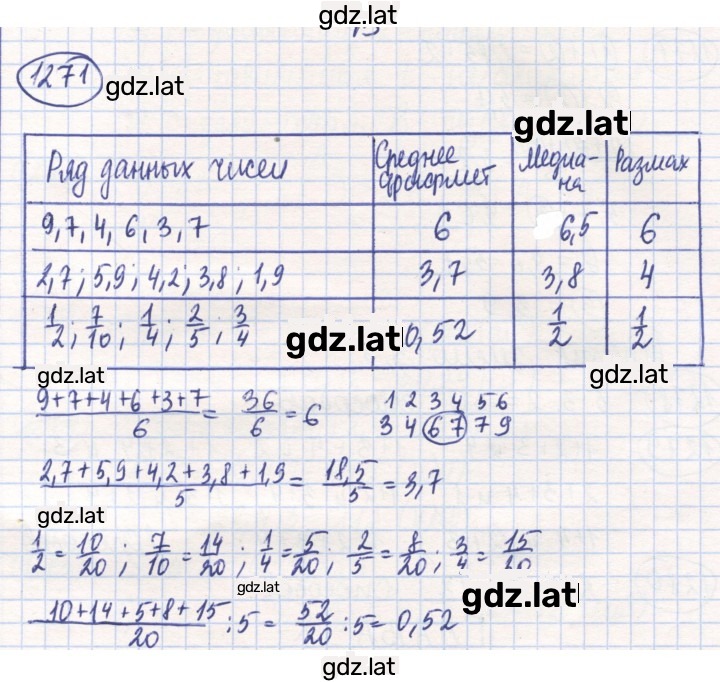 gdz.lat
1271 gdz.lat
gdz.lat
Ряд данных чисел | Среднее арифмет | Медиа-на | Размах
9, 7, 4, 6, 3, 7 | 6 | 6,5 | 6
2,7; 5,9; 4,2; 3,8; 1,9 | 3,7 | 3,8 | 4
1/2; 7/10; 1/4; 2/5; 3/4 | 0,52 | 1/2 | 1/2
gdz.lat
gdz.lat gdz.lat
(9+7+4+6+3+7)/6 = 36/6 = 6
1 2 3 4 5 6
3 4 6 7 7 9
(2,7+5,9+4,2+3,8+1,9)/5 = 18,5/5 = 3,7
gdz.lat
1/2 = 10/20; 7/10 = 14/20; 1/4 = 5/20; 2/5 = 8/20; 3/4 = 15/20
gdz.lat gdz.lat
(10+14+5+8+15)/20 : 5 = 52/20 : 5 = 0,52
gdz.lat